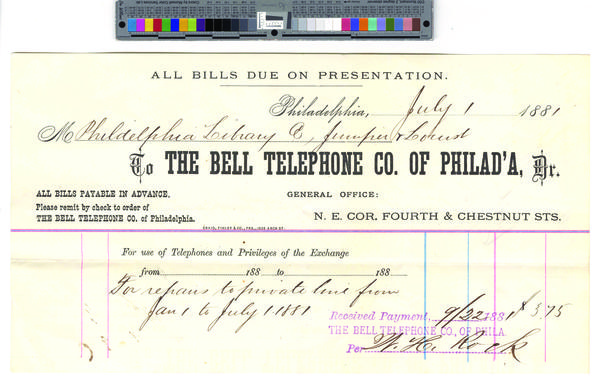 ALL BILLS DUE ON PRESENTATION.
Philadelphia, July 1 1881
M Phildelphia Library C, Juniper & Locust
To THE BELL TELEPHONE CO. OF PHILAD'A, Dr.
ALL BILLS PAYABLE IN ADVANCE.
GENERAL OFFICE:
Please remit by check to order of
THE BELL TELEPHONE CO. of Philadelphia.
N. E. COR. FOURTH & CHESTNUT STS.
CRAIG, FINLEY & CO., PRS., 1020 ARCH ST.
For use of Telephones and Privileges of the Exchange
from 188 to 188
For repairs to private line from
Jan 1 to July 1 1881 $ 3.75
Received Payment, 9/22 1881
THE BELL TELEPHONE CO., OF PHILA.
Per W. H. Rock